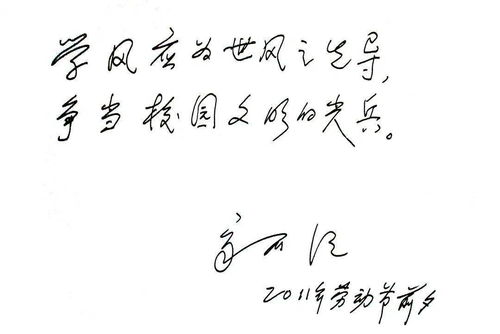 学风应为世风之先导,
争当校园文明的尖兵。
2011年劳动节前夕